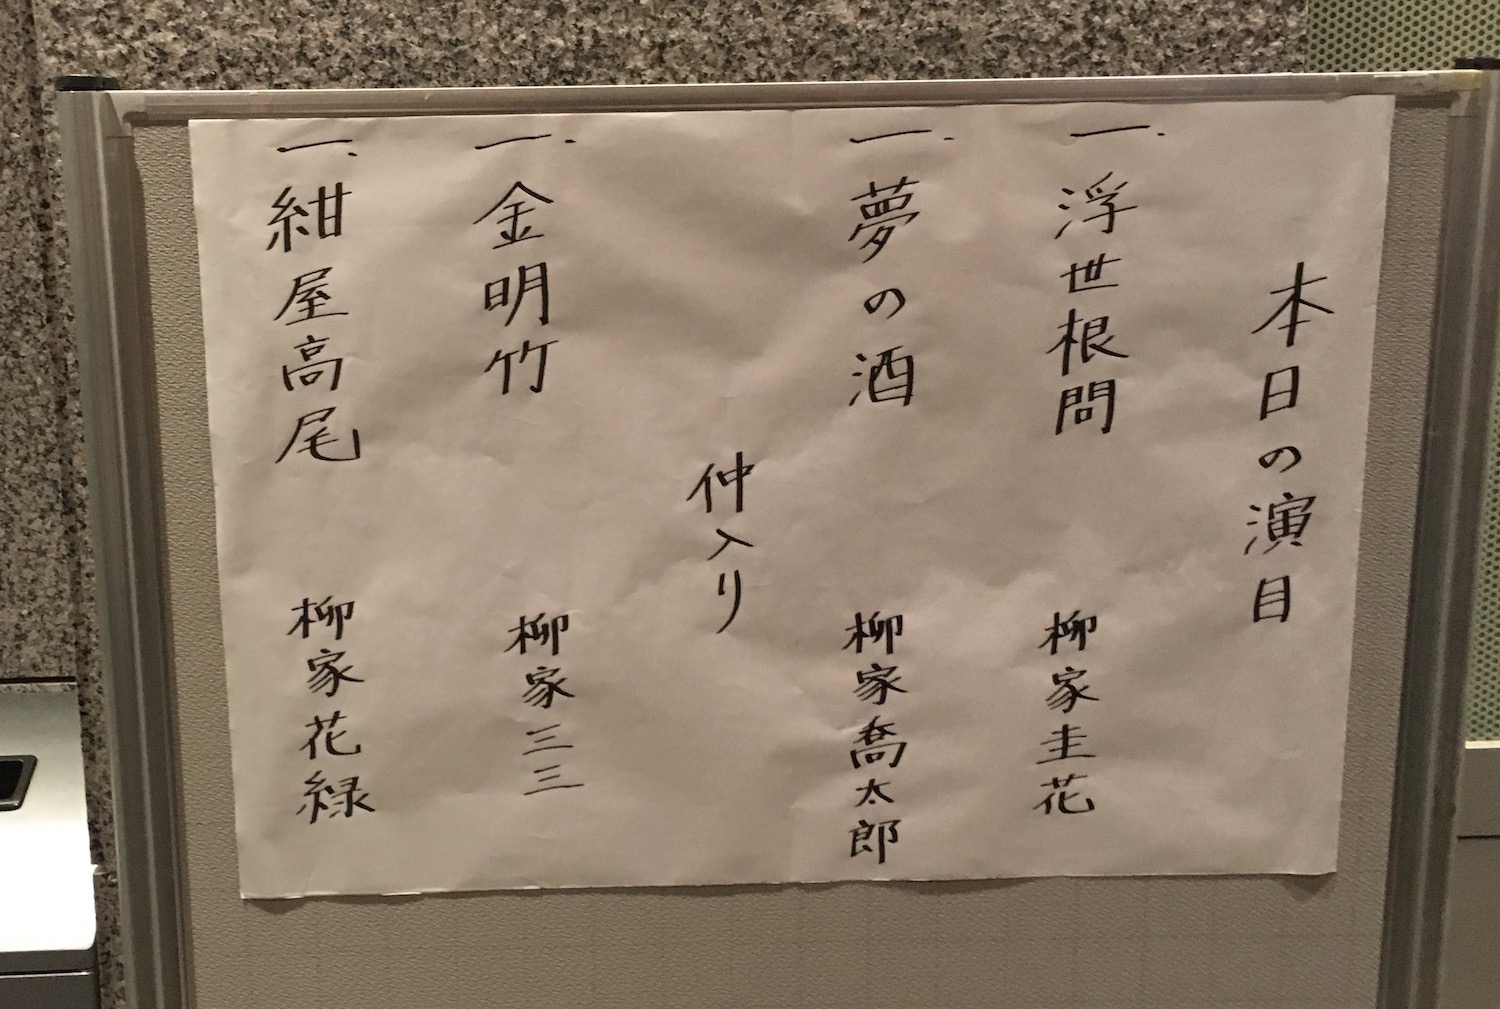 本日の演目
一. 浮世根問 柳家圭花
一. 夢の酒 柳家喬太郎
仲入り
一. 金明竹 柳家三三
一. 紺屋高尾 柳家花緑